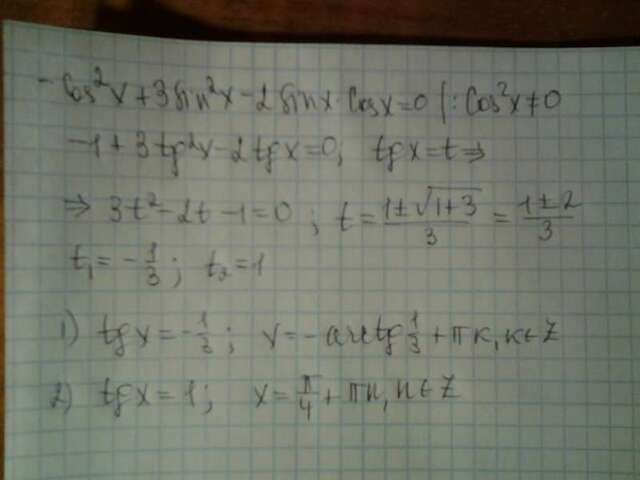 -cos²x+3sin²x-2sinx·cosx=0 |:cos²x≠0
-1+3tg²x-2tgx=0; tgx=t⇒
⇒ 3t²-2t-1=0; t=(1±√(1+3))/3=(1±2)/3
t₁=-1/3; t₂=1
1) tgx=-1/3; x=-arctg 1/3+πk, k∈Z
2) tgx=1; x=π/4+πn, n∈Z